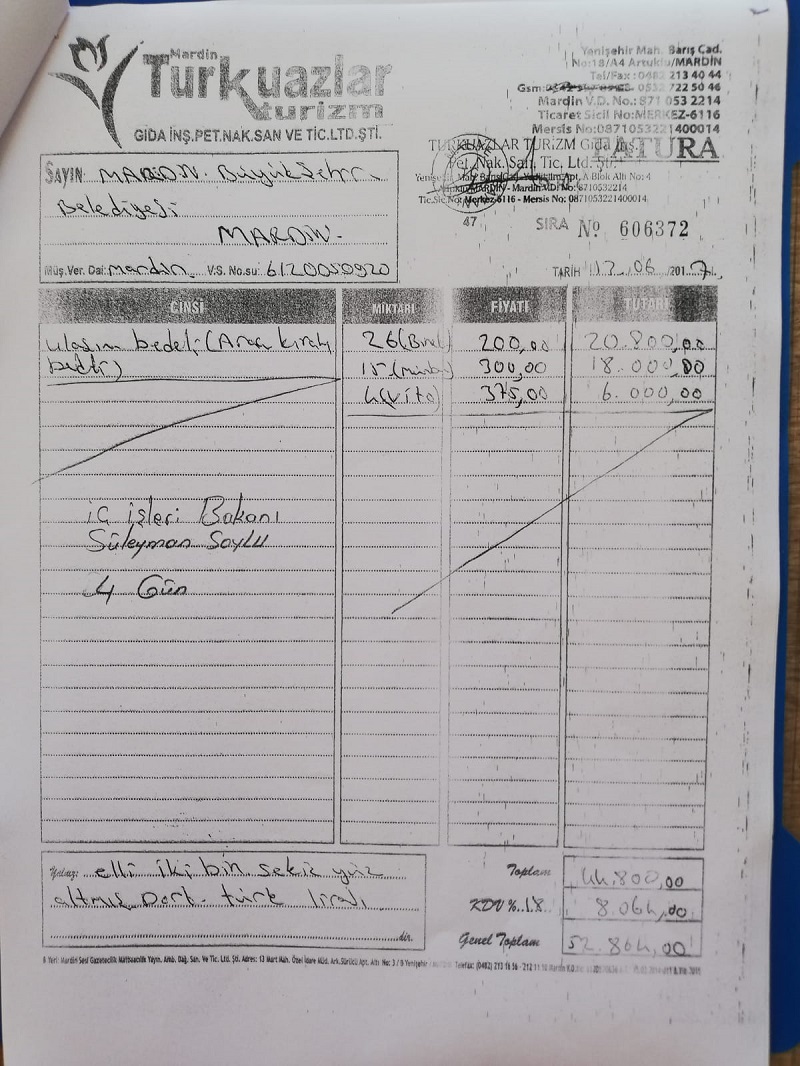 Mardin
Türkuazlar
turizm
GIDA İNŞ.PET.NAK.SAN VE TİC.LTD.ŞTİ.
Yenişehir Mah. Barış Cad.
No:18/A4 Artuklu/MARDİN
Tel/Fax:0482 213 40 44
Gsm: 0532 722 50 46
Mardin V.D. No.:871 053 2214
Ticaret Sicil No:MERKEZ-6116
Mersis No:0871053221400014
FATURA
TURKUAZLAR TURİZM Gıda İnş.
Pet. Nak. San. Tic. Ltd. Şti.
Apt. A Blok Altı No: 4
Artuklu/MARDİN - Mardin V.D. No: 8710532214
Tic.Sic.No: Merkez-6116 - Mersis No: 0871053221400014
47
SAYIN MARDİN. Büyükşehir
Belediyesi
MARDİN-
Müş.Ver. Dai: mardin V.S. No.su: 6120050920
SIRA Nº 606372
TARİH 12.06.2017.
CİNSİ MİKTARI FİYATI TUTARI
ulaşım bedeli (Araç kirala 26 (Bine) 200,00 20.800,00
bedeli) 15 (minib) 300,00 18.000,00
4 (vito) 375,00 6.000,00
iç işleri Bakanı
Süleyman Soylu
4 Gün
Yalnız: elli iki bin sekiz yüz
altmış Dört türk lirası
dir.
Toplam 44.800,00
KDV %.18 8.064,00
Genel Toplam 52.864,00
B Yeri: Mardin Sesi Gazetecilik Matbaacılık Yayın. Amb. Dağ. San. Ve Tic. Ltd. Şti. Adres: 13 Mart Mah. Özel İdare Müd. Ark.Sürücü Apt. Altı No: 3 / B Yenişehir